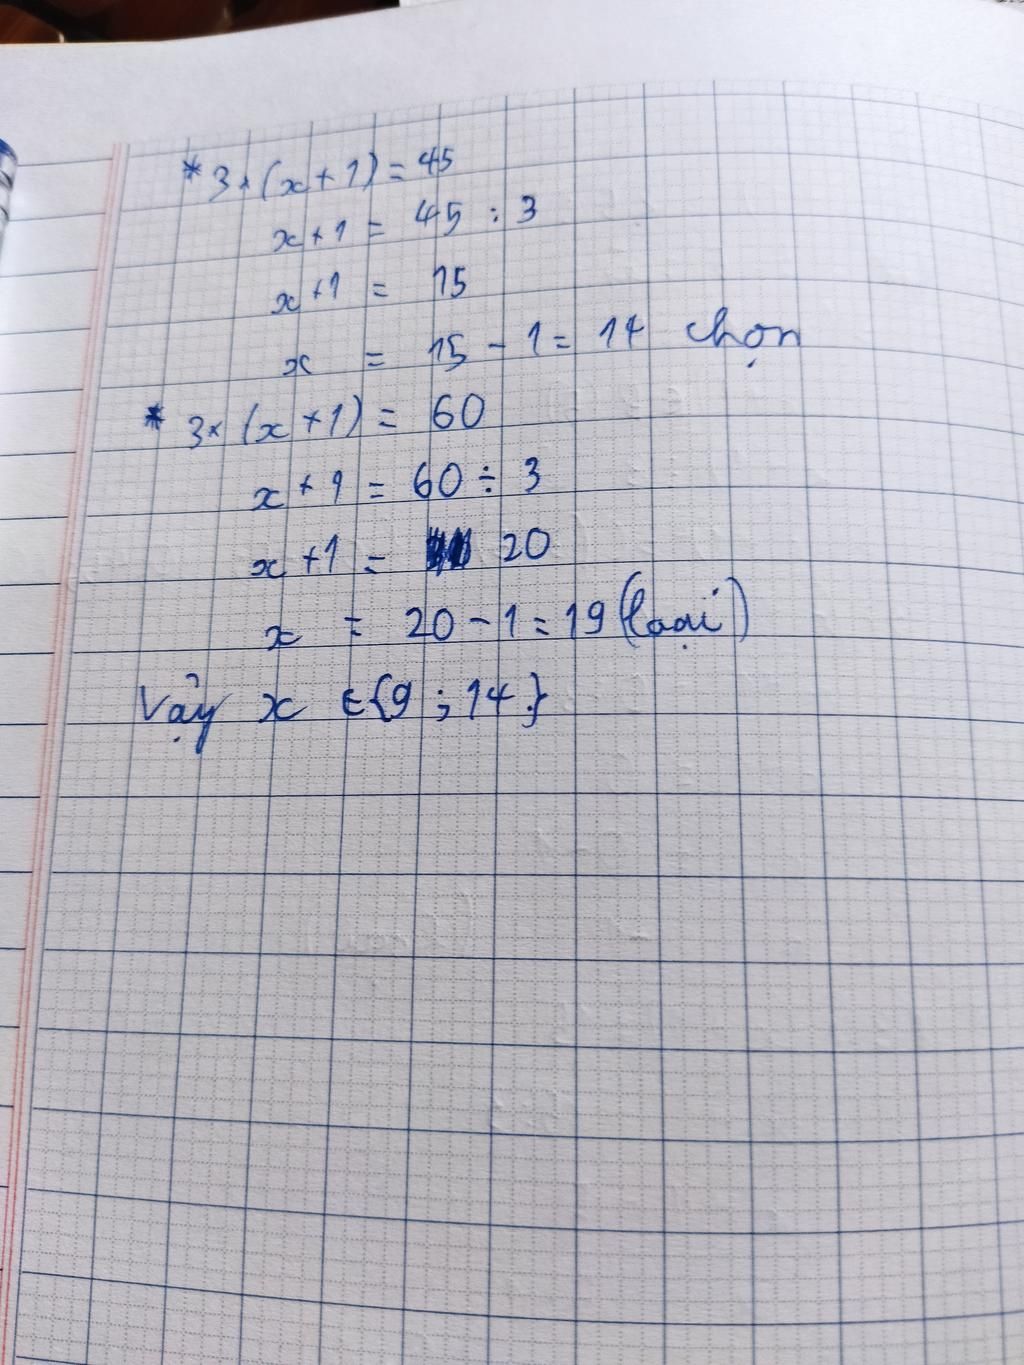 * 3 × (x + 1) = 45
x + 1 = 45 : 3
x + 1 = 15
x = 15 - 1 = 14 chọn
* 3 × (x + 1) = 60
x + 1 = 60 ÷ 3
x + 1 = 20
x = 20 - 1 = 19 (loại)
Vậy x ∈ {9 ; 14}